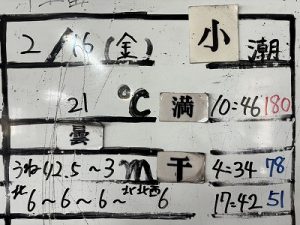 2/16(金) 小潮
21 ℃ 満 10:46 180
曇
うねり2.5~3m 干 4:34 78
北6~6~6~北北西6 17:42 51